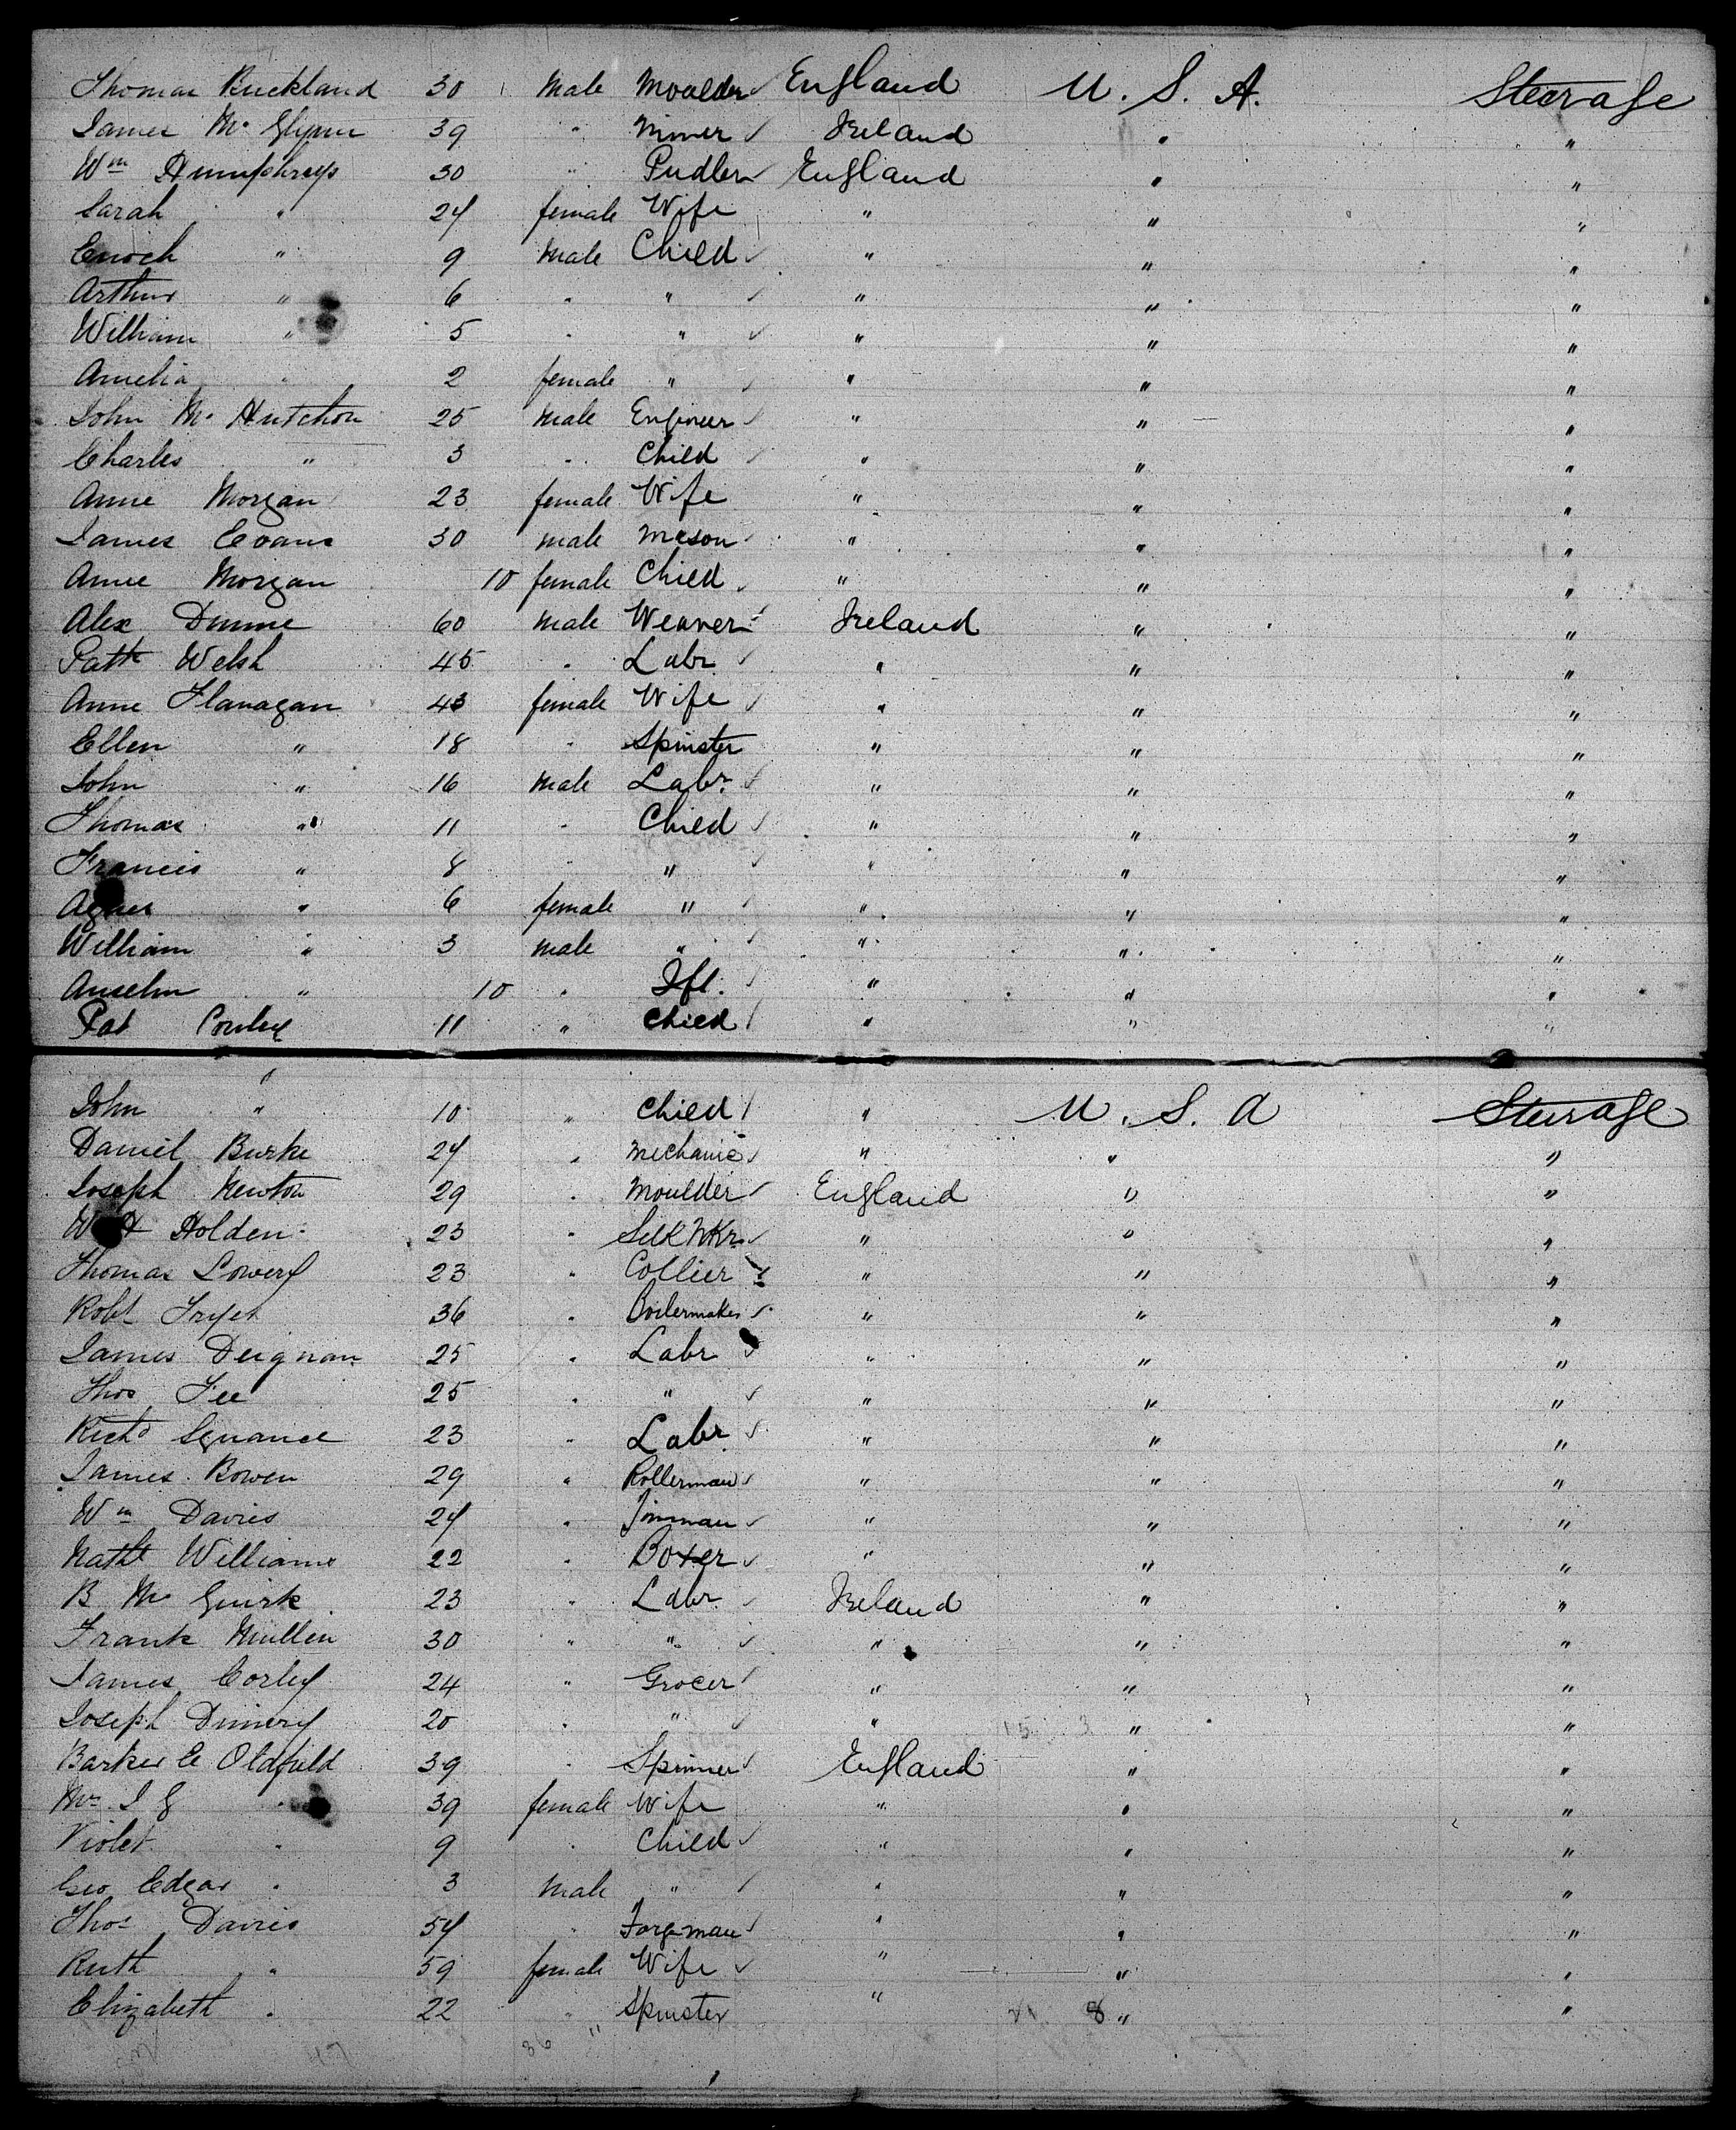 Thomas Buckland 30 Male Moulder England U. S. A. Steerage
James Mc Glynn 39 " Miner Ireland " "
Wm Humphreys 30 " Pudler England " "
Sarah " 24 female Wife " " "
Enoch " 9 Male Child " " "
Arthur " 6 " " " " "
William " 5 " " " " "
Amelia " 2 female " " " "
John Mc Hutchon 25 Male Engineer " " "
Charles " 3 " Child " " "
Anne Morgan 23 female Wife " " "
James Evans 30 male Mason " " "
Anne Morgan 10 female Child " " "
Alex Dunne 60 Male Weaver Ireland " "
Patk Welsh 45 " Labr " " "
Anne Flanagan 43 female Wife " " "
Ellen " 18 " Spinster " " "
John " 16 Male Labr " " "
Thomas " 11 " Child " " "
Francis " 8 " " " " "
Agnes " 6 female " " " "
William " 3 male " " " "
Anselm " 10 " Ifl. " " "
Pat Conley 11 " Child " " "
John " 10 " Child " U. S. A Steerage
Daniel Burke 24 " Mechanic " " "
Joseph Newton 29 " Moulder England " "
W H Holden 23 " Silk Wkr " " "
Thomas Lowery 23 " Collier " " "
Robt Fryer 36 " Boilermaker " " "
James Deignan 25 " Labr " " "
Thos Fee 25 " " " " "
Richd Squance 23 " Labr " " "
James Bowen 29 " Rollerman " " "
Wm Davies 24 " Tinman " " "
Nathl Williams 22 " Boxer " " "
B Mc Guirk 23 " Labr Ireland " "
Frank Mullen 30 " " " " "
James Corley 24 " Grocer " " "
Joseph Dimery 20 " " " " "
Barker E Oldfield 39 " Spinner England " "
Mrs I G " 39 female Wife " " "
Violet " 9 " Child " " "
Geo Edgar " 3 Male " " " "
Thos Davies 54 " Forgeman " " "
Ruth " 59 female Wife " " "
Elizabeth " 22 " Spinster " 8 " "
36 "